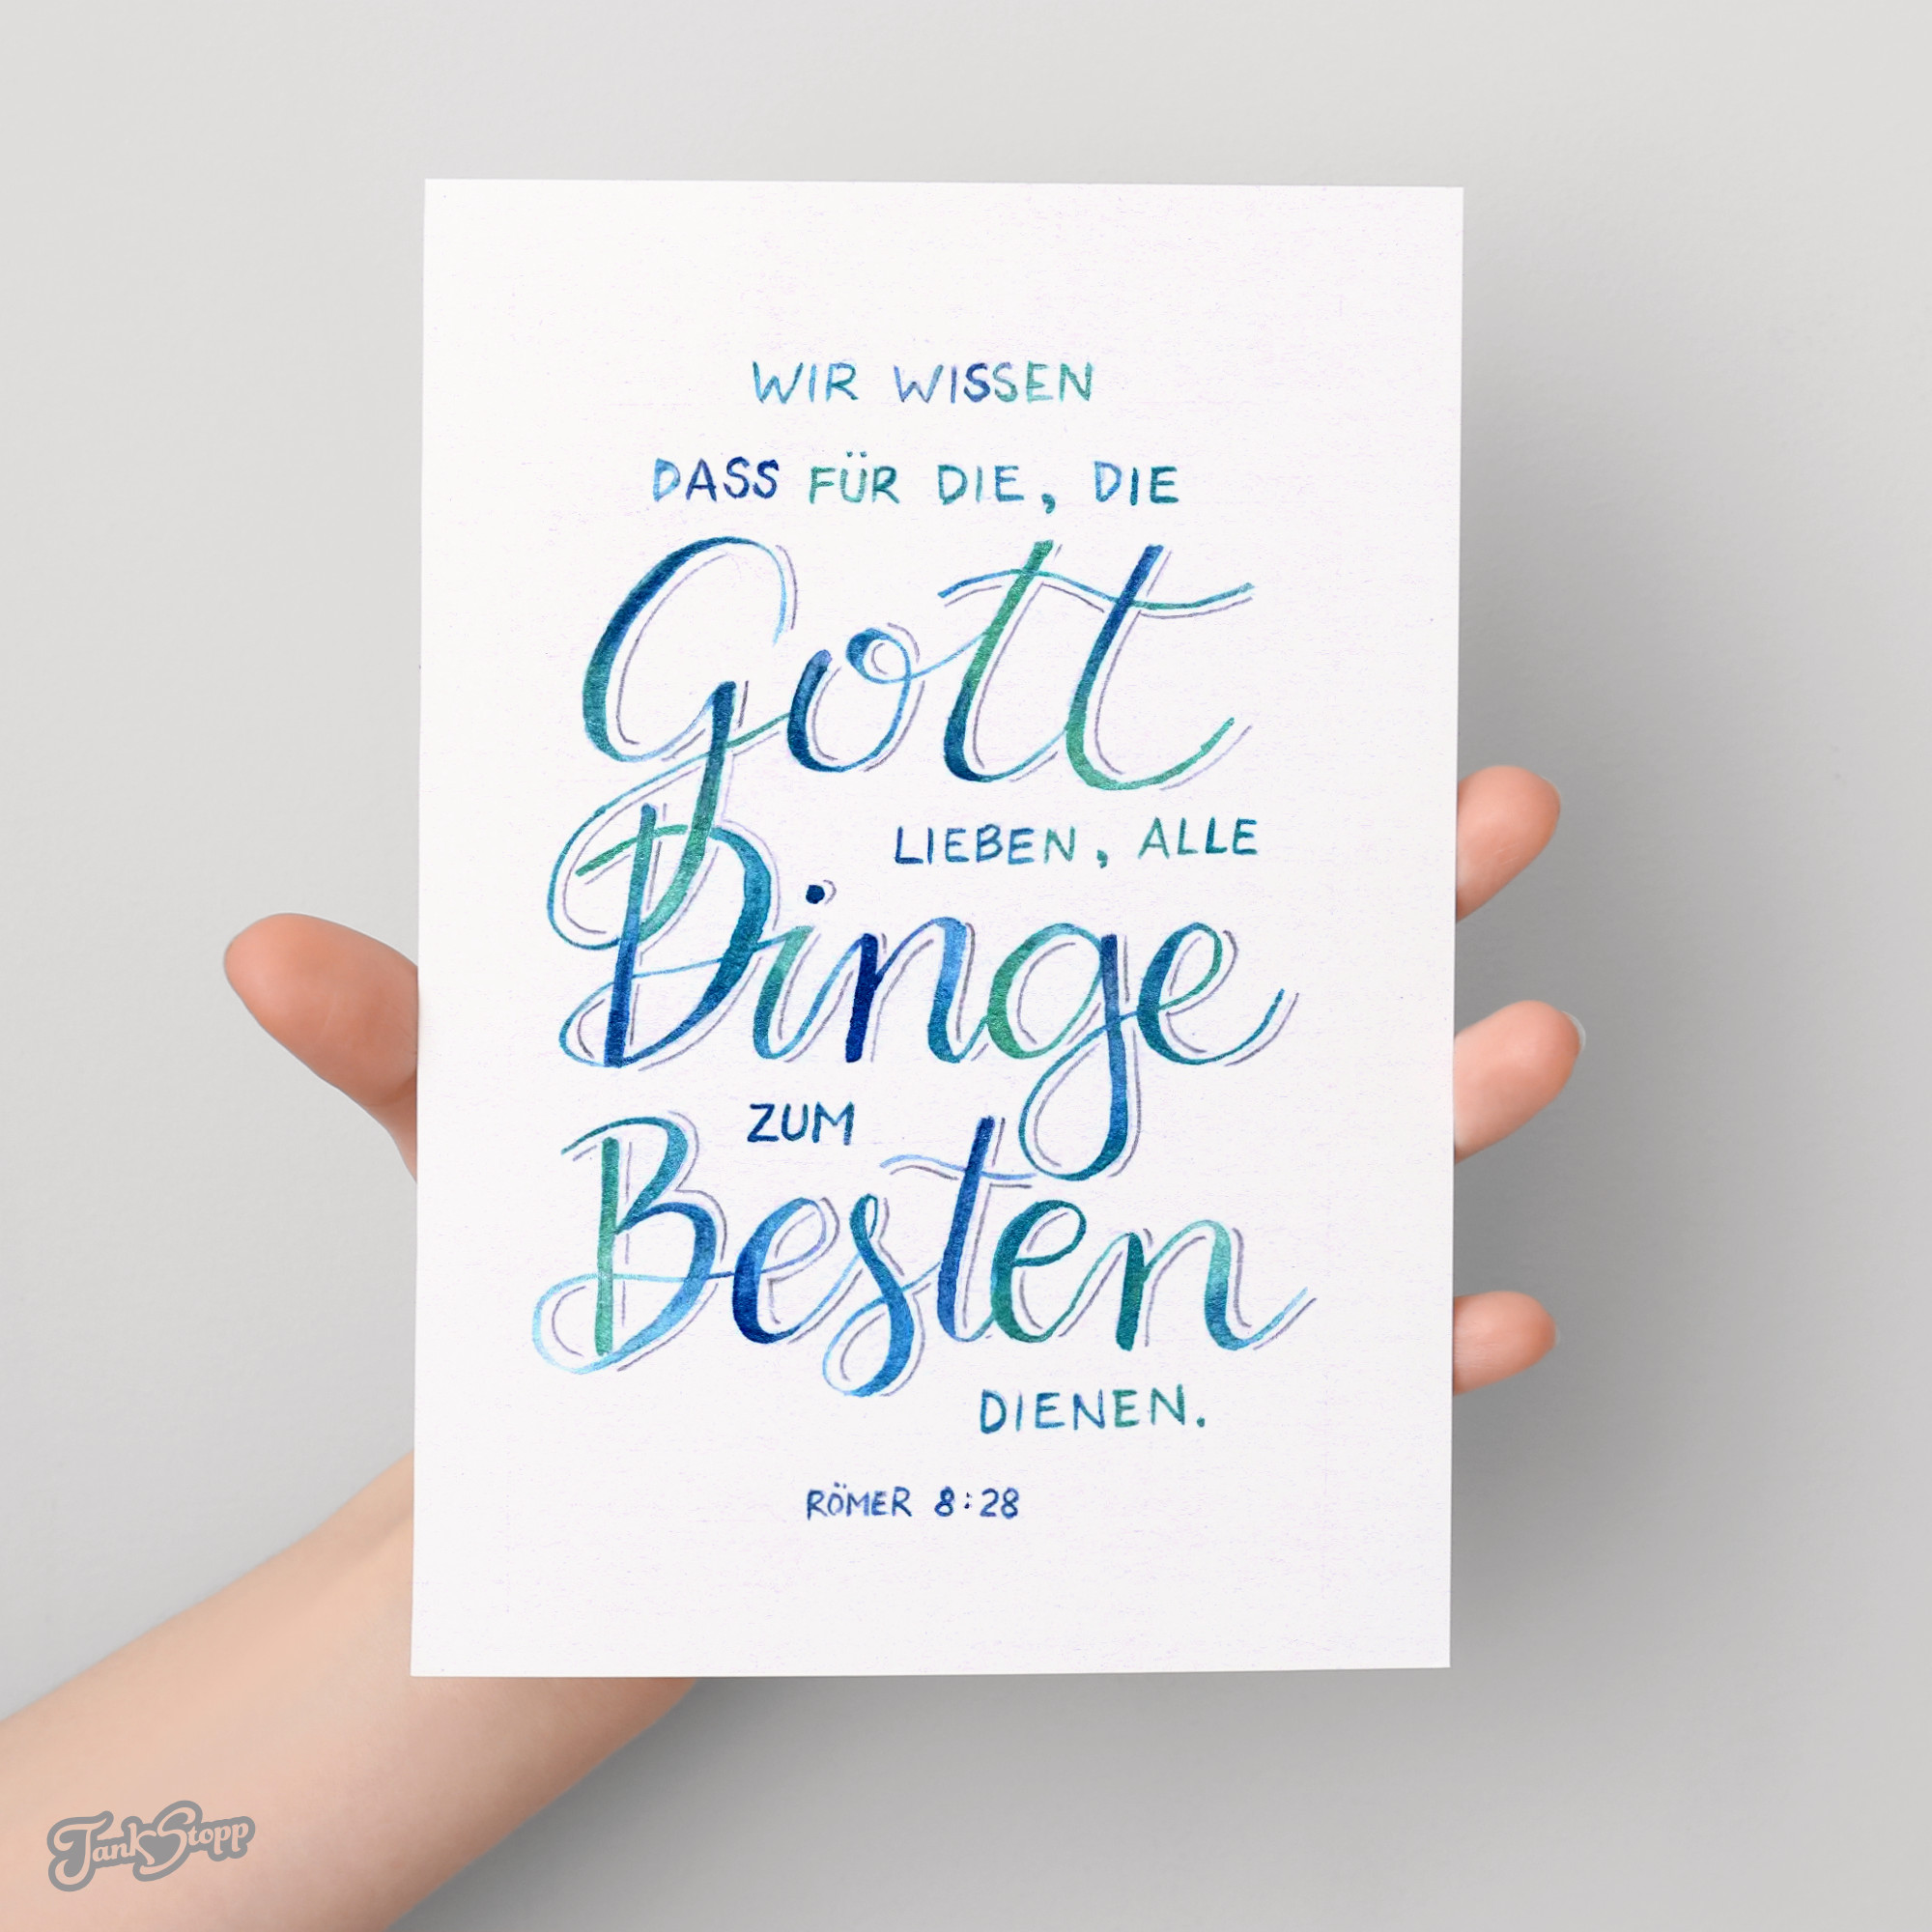 WIR WISSEN
DASS FÜR DIE, DIE
Gott
LIEBEN, ALLE
Dinge
ZUM
Besten
DIENEN.
RÖMER 8:28
TankStopp